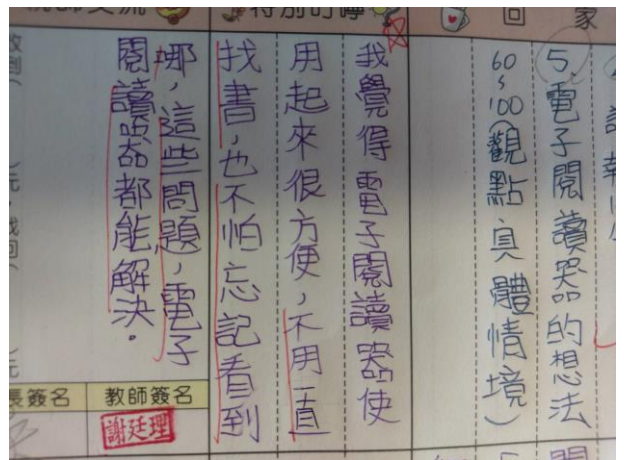 特別叮嚀
回
家
5.電子閱讀器的想法
60~100觀點具體情境)
我覺得電子閱讀器使
用起來很方便,不用一直
找書,也不怕忘記看到
哪,這些問題,電子
閱讀器都能解決.
長簽名
教師簽名
謝廷理